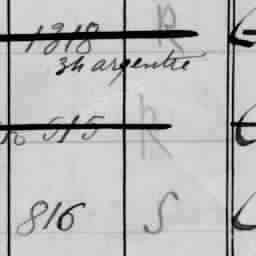 1318 R
3h argentre
515 R
816 S